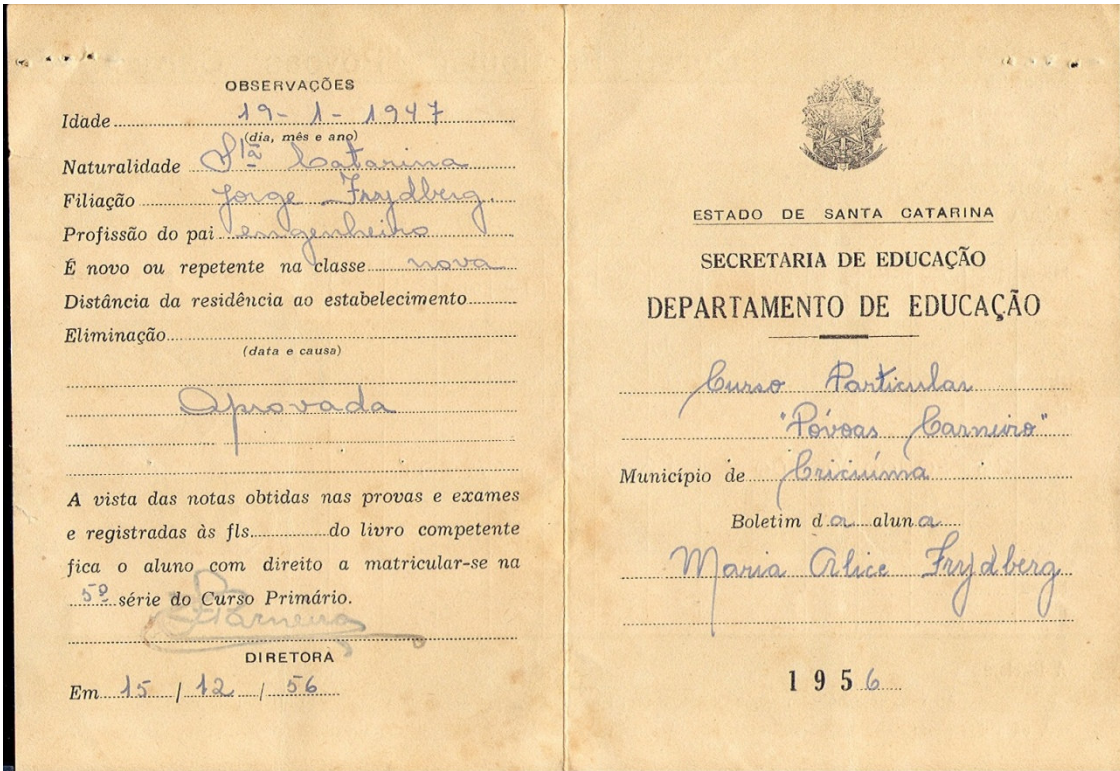 OBSERVAÇÕES
Idade 19-1-1947
(dia, mês e ano)
Naturalidade Sta Catarina
Filiação Jorge Frydberg.
Profissão do pai engenheiro
É novo ou repetente na classe nova
Distância da residência ao estabelecimento
Eliminação
(data e causa)
Aprovada
A vista das notas obtidas nas provas e exames
e registradas às fls. do livro competente
fica o aluno com direito a matricular-se na
5º série do Curso Primário.
Carneiro
DIRETORA
Em 15 / 12 / 56
ESTADO DE SANTA CATARINA
SECRETARIA DE EDUCAÇÃO
DEPARTAMENTO DE EDUCAÇÃO
Curso Particular
"Póvoas Carneiro"
Município de Criciúma
Boletim da aluna
Maria Alice Frydberg
1956